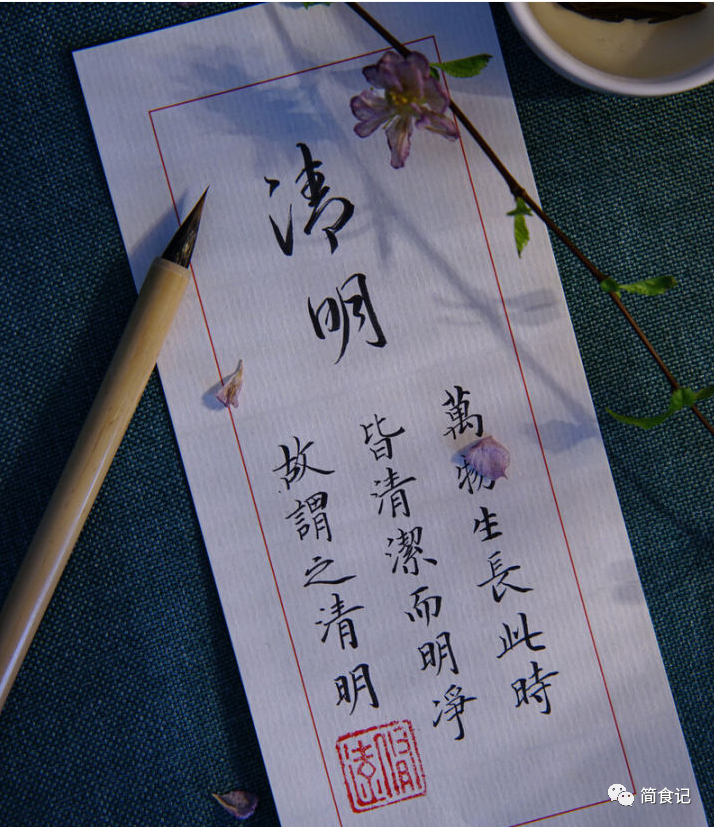 清明
萬物生長此時
皆清潔而明淨
故謂之清明
简食记